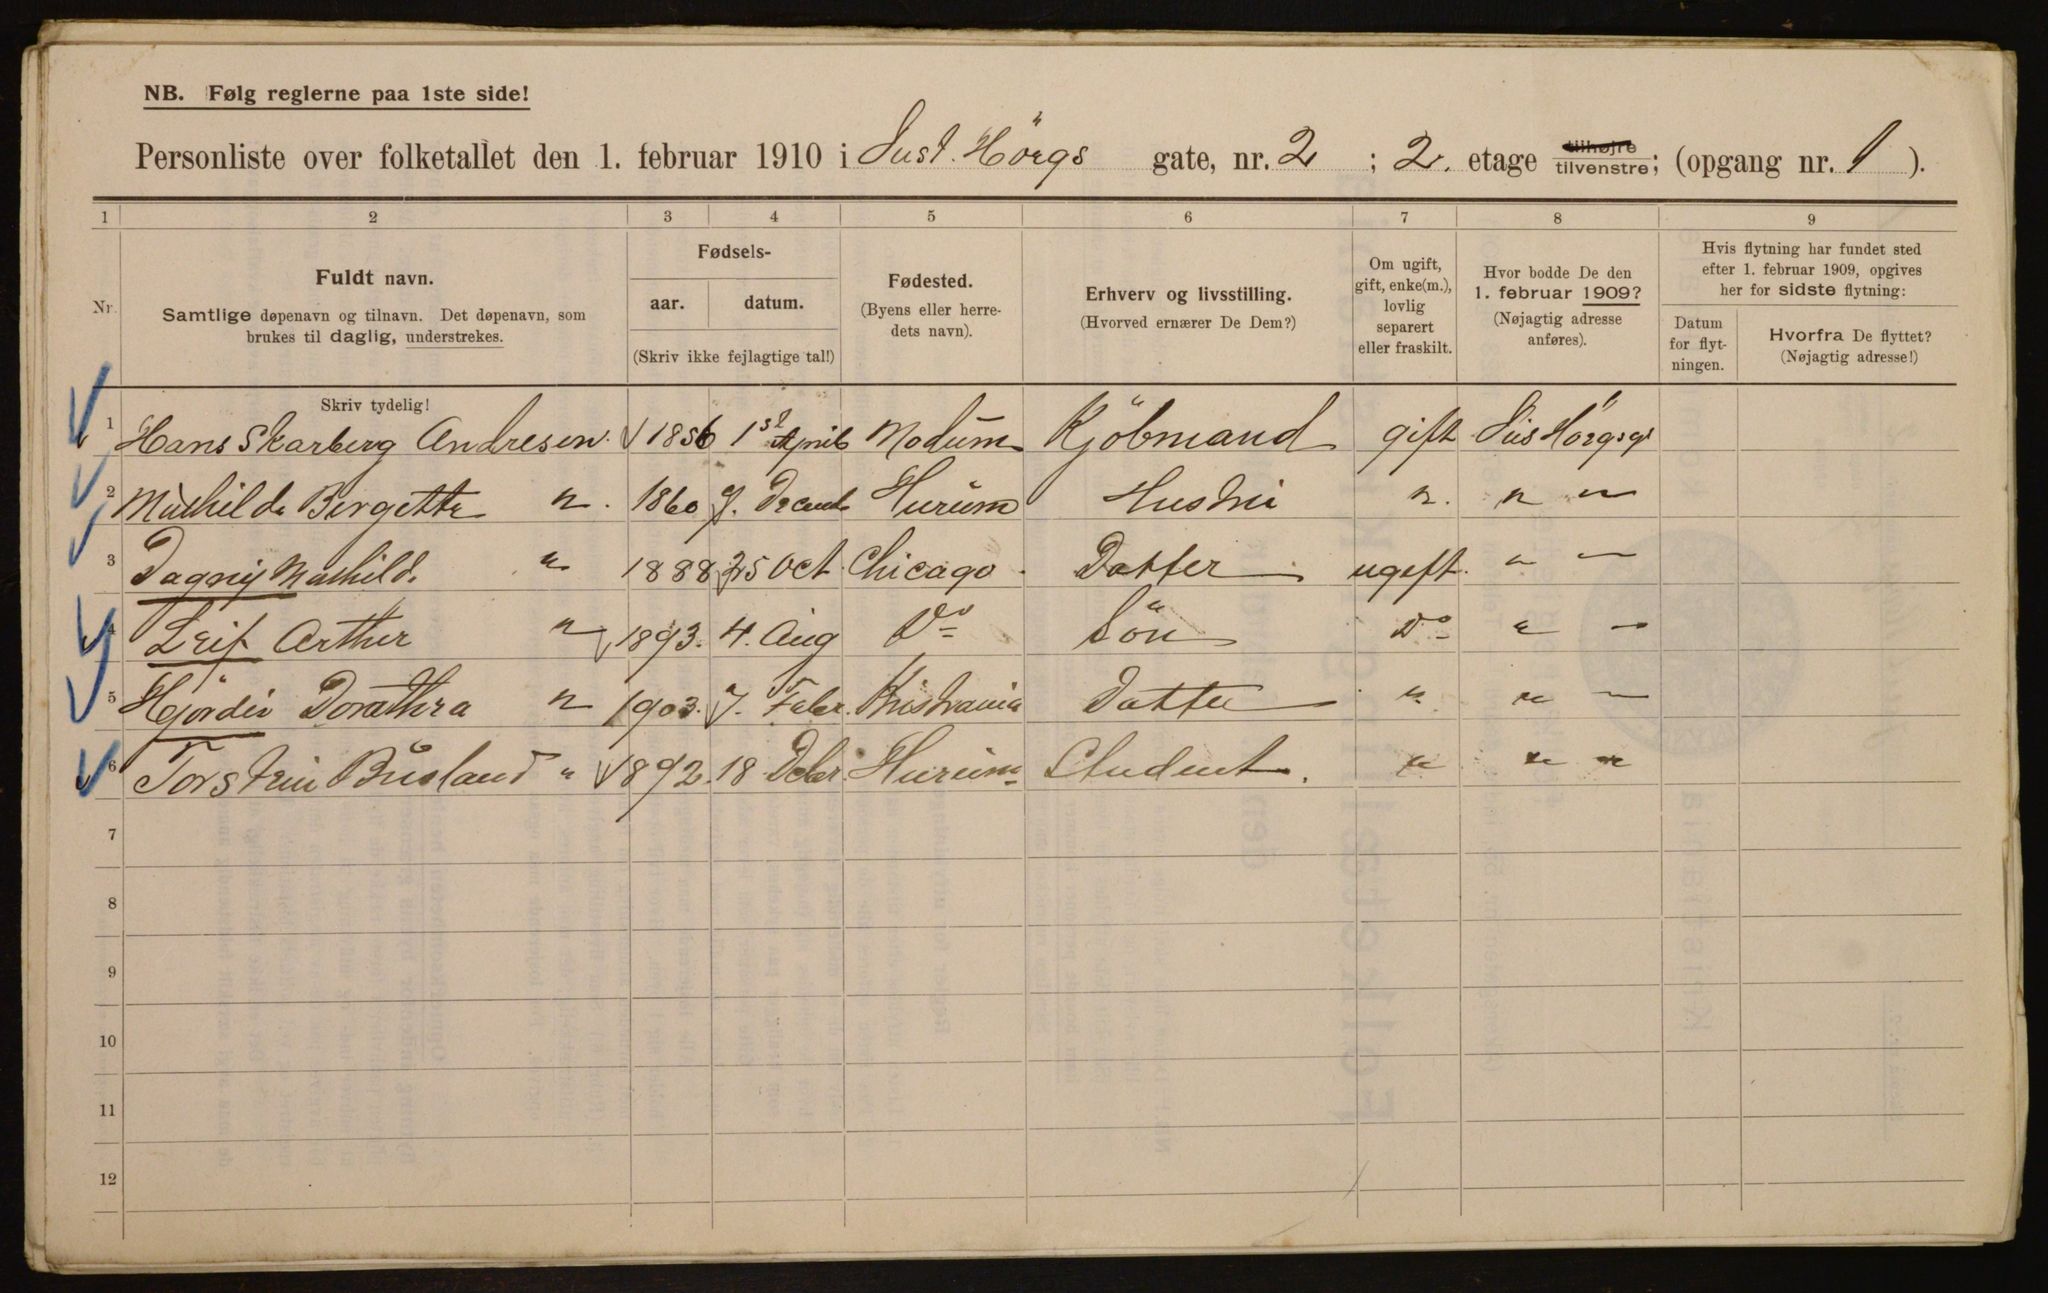 NB. Følg reglerne paa 1ste side!
Personliste over folketallet den 1. februar 1910 i Just. Hörgs gate, nr. 2 ; 2. etage tilhøjre tilvenstre; (opgang nr. 1 ).
1 2 3 4 5 6 7 8 9
Nr. Fuldt navn. Samtlige døpenavn og tilnavn. Det døpenavn, som brukes til daglig, understrekes.
Fødsels-
aar. datum.
(Skriv ikke fejlagtige tal!)
Fødested. (Byens eller herredets navn).
Erhverv og livsstilling. (Hvorved ernærer De Dem?)
Om ugift, gift, enke(m.), lovlig separert eller fraskilt.
Hvor bodde De den 1. februar 1909? (Nøjagtig adresse anføres).
Hvis flytning har fundet sted efter 1. februar 1909, opgives her for sidste flytning:
Datum for flytningen. Hvorfra De flyttet? (Nøjagtig adresse!)
Skriv tydelig!
1 Hans Skarberg Andresen. 1856 1st April Modum Kjöbmand gift Hörgsg
2 Mathilde Birgette " 1860 9. Decemb Hurum Hustru " " "
3 Dagny Mathilde " 1888 25 Oct Chicago Datter ugift " "
4 Leif Arthur " 1893. 4. Aug Do Sön Do " "
5 Hjördis Dorothea " 1903. 7. Febr. Kristiania Datter " " "
6 Torstein Büsland " 1892. 18 Debr Hurum Student. " " "
7
8
9
10
11
12